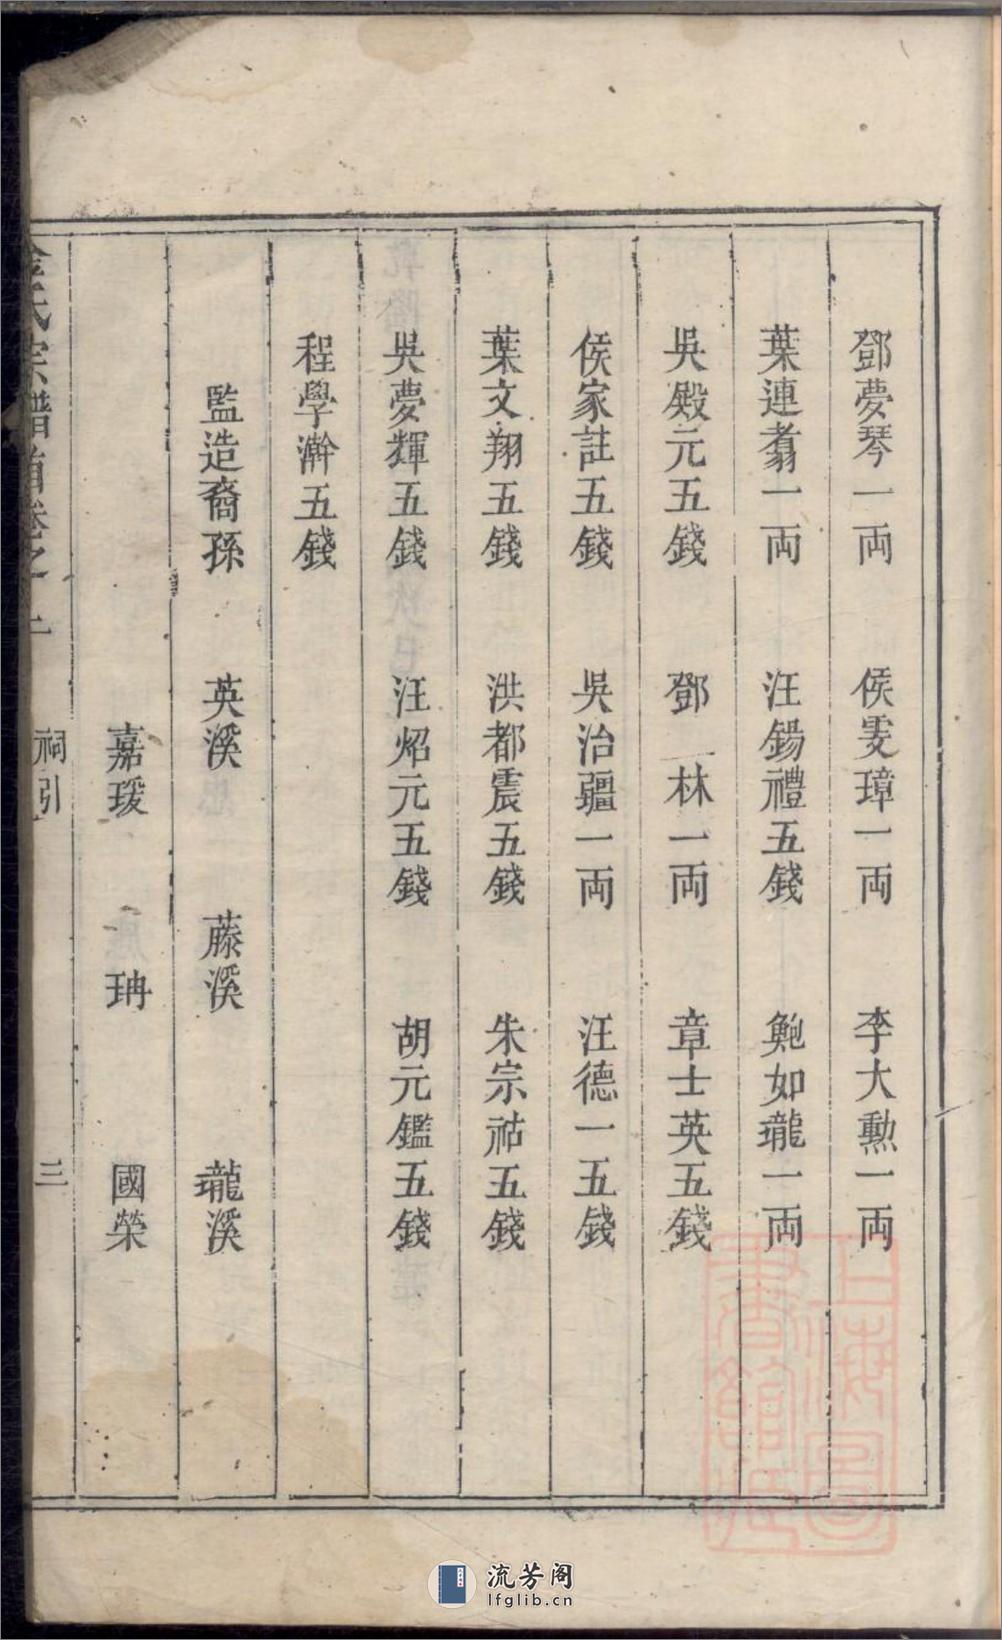 鄧夢琴一両 侯雯璋一両 李大勲一両
葉連翥一両 汪錫禮五錢 鮑如瓏一両
吳殿元五錢 鄧林一両 章士英五錢
侯家註五錢 吳治疆一両 汪德一五錢
葉文翔五錢 洪都震五錢 朱宗祜五錢
吳夢輝五錢 汪炤元五錢 胡元鑑五錢
程學澣五錢
監造裔孫 英溪 藤溪 瓏溪
嘉瑗 珃 國榮
氏宗譜首卷之一 祠引 三
上海圖書館藏
流芳阁
lfglib.cn